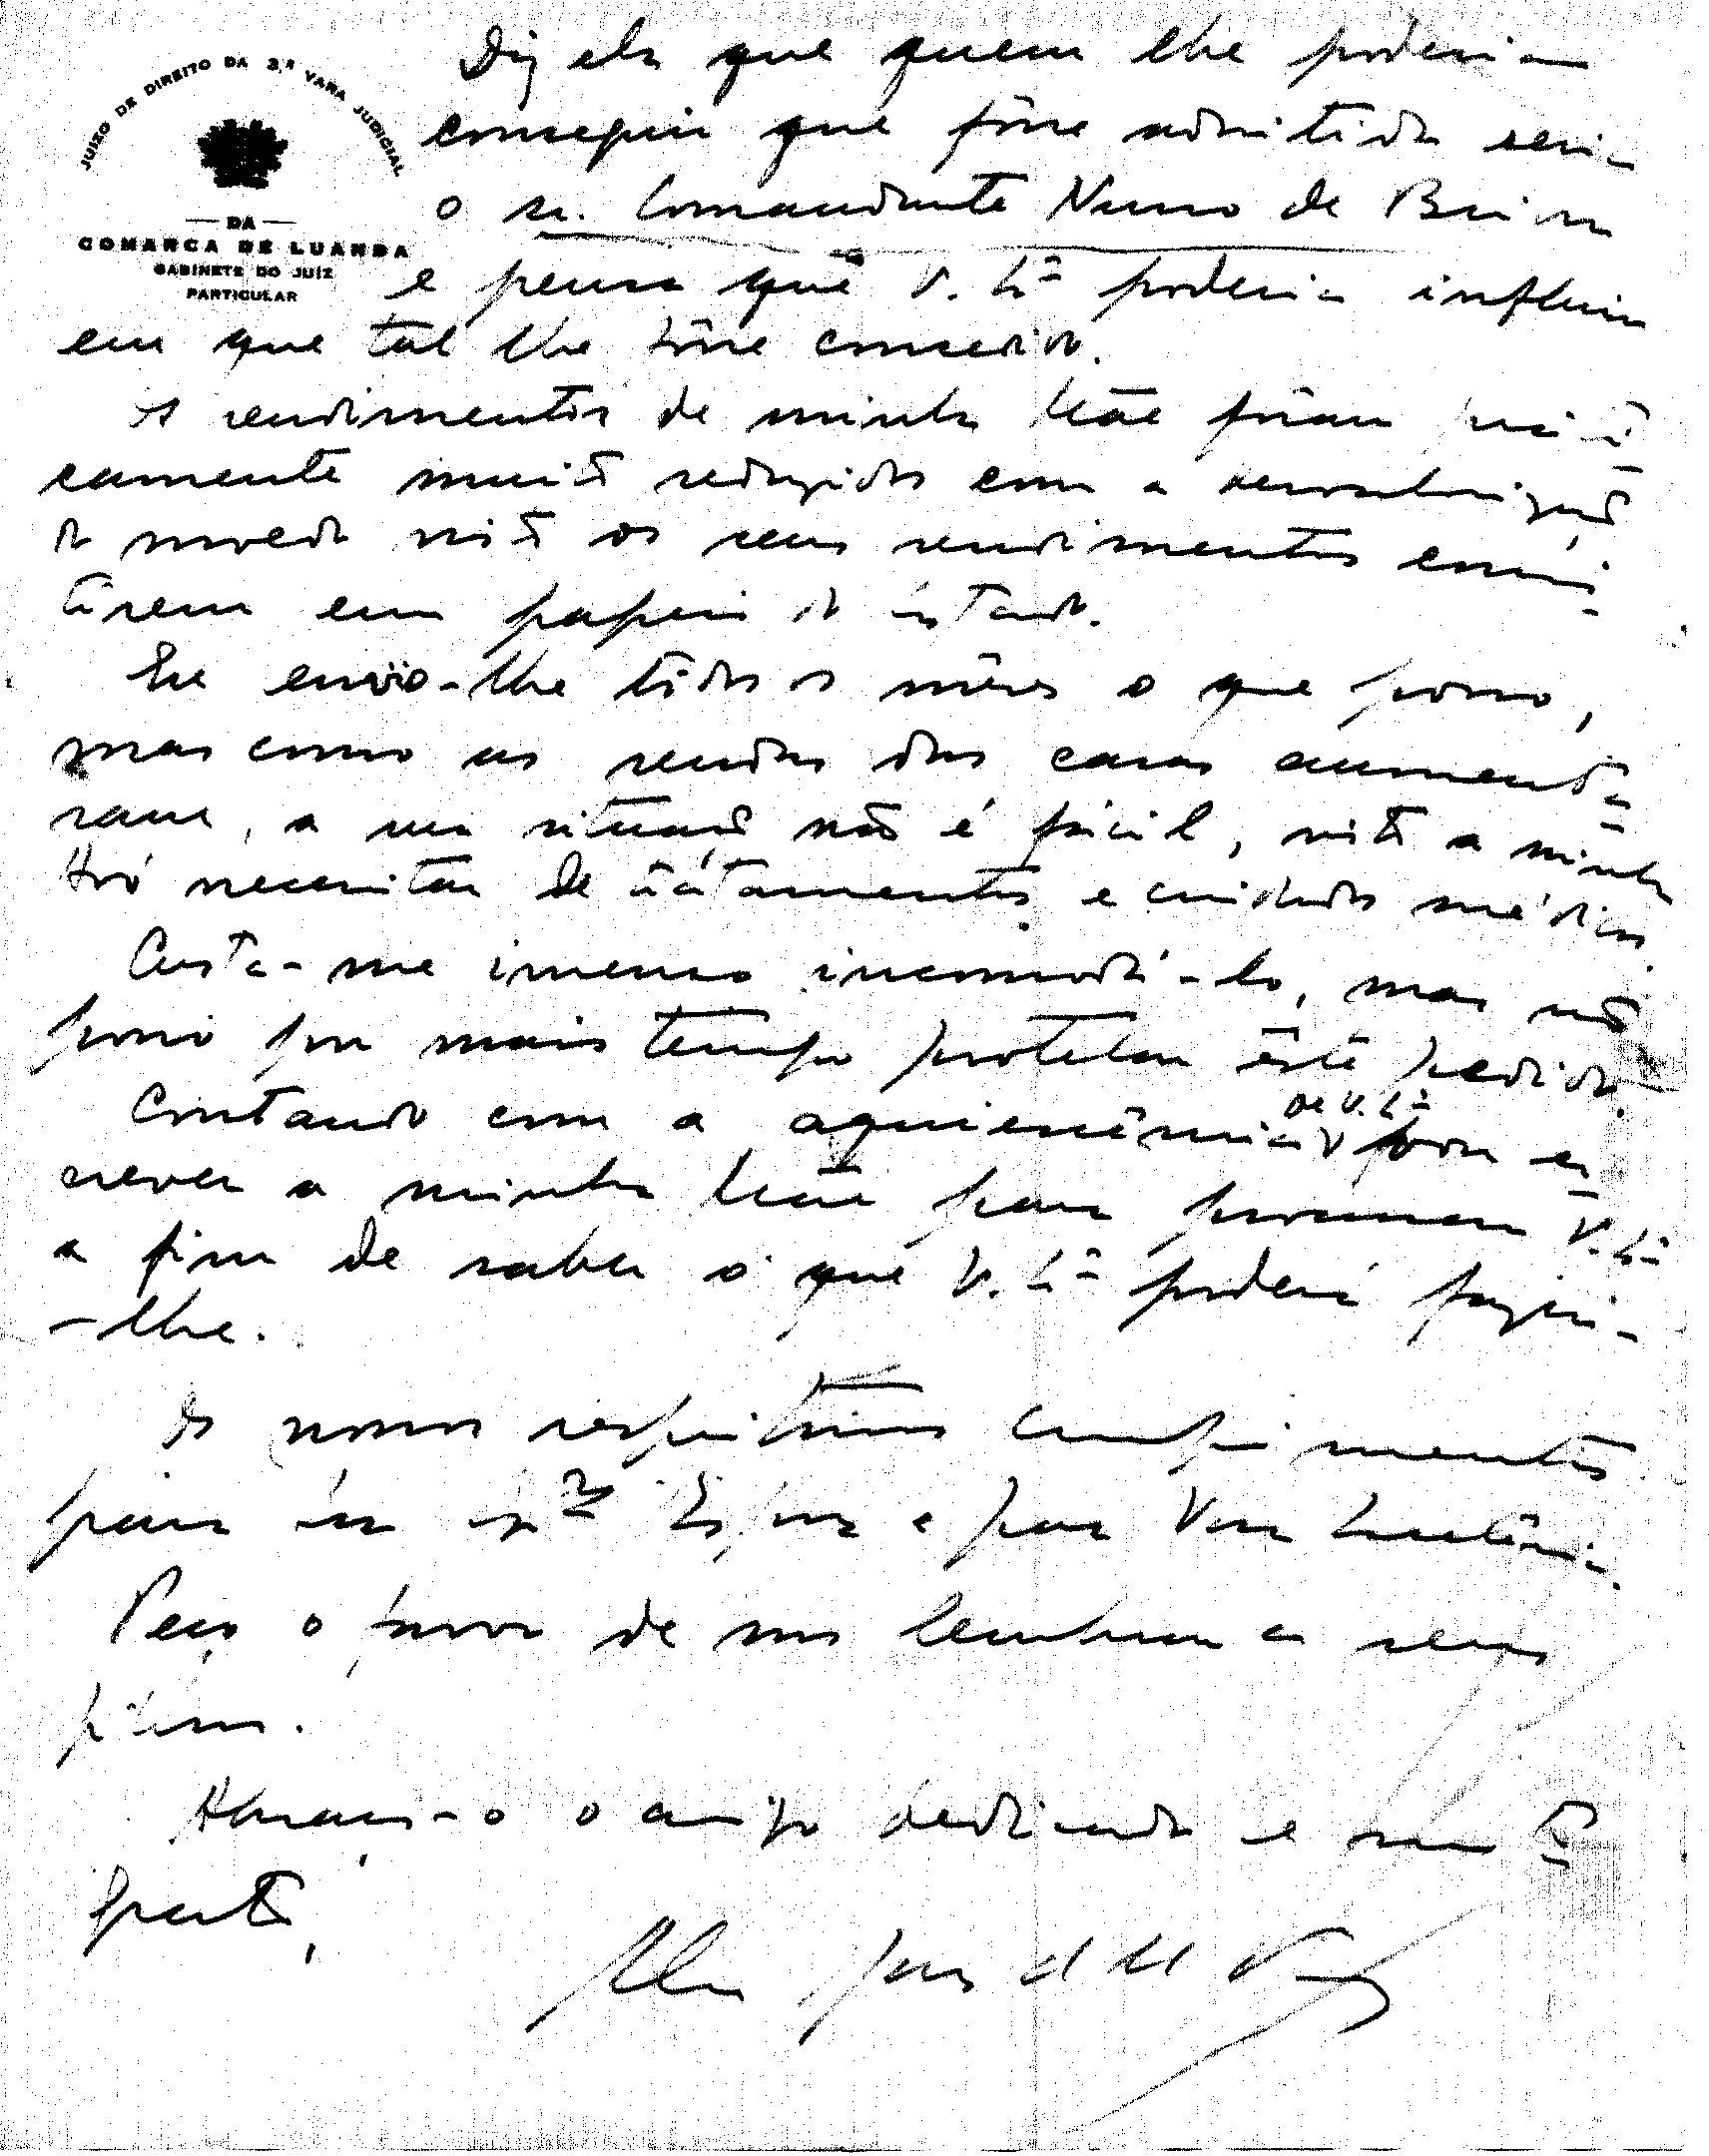 JUIZO DE DIREITO DA 3.ª VARA JUDICIAL
— DA —
COMARCA DE LUANDA
GABINETE DO JUIZ
PARTICULAR
Diz ela que quem lhe poderia
conseguir que fôsse admitida seria
o sr. Comandante Nuno de Brion
e pensa que V. Exª poderia influir
em que tal lhe fôsse concedido.
Os rendimentos de minha Mãe fôram
camente muito reduzidos com a desvalorização
da moeda visto os seus rendimentos consis-
tirem em papeis do estado.
Eu envio-lhe todos os mêses o que posso,
mas como as rendas das casas aumenta-
ram, a sua situação não é fácil, visto a minha
Avó necessitar de tratamentos e cuidados médicos.
Custa-me imenso incomodá-lo, mas não
posso por mais tempo protelar êste pedido.
Contando com a aquiescência de V. Exª vou es-
crever a minha Mãe para procurar V. Exª
a fim de saber o que V. Exª poderá fazer-
-lhe.
Os nossos respeitosos cumprimentos
para sua exma Esposa e para Vossa Excelência.
Peço o favor de nos lembrar a seus
filhos.
Abraça-o o amigo dedicado e muito
grato,